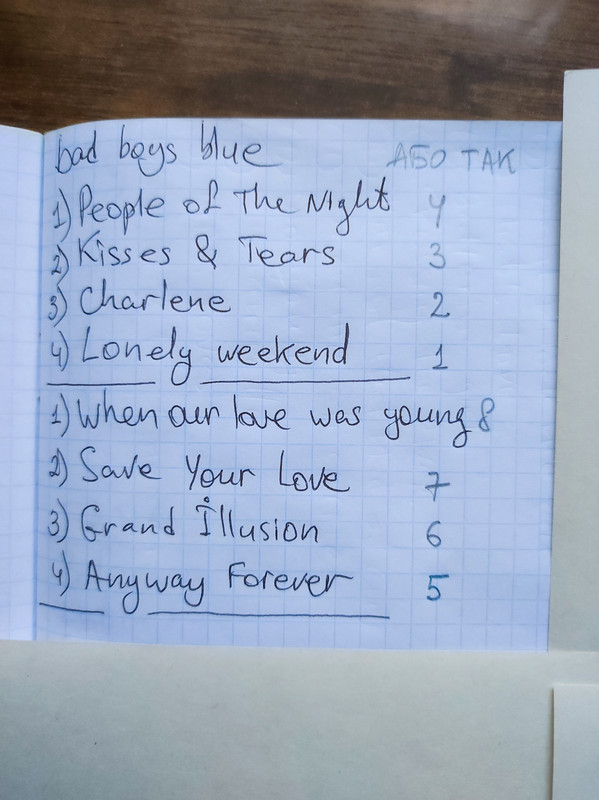 bad boys blue АБО ТАК
1) People of The Night 4
2) Kisses & Tears 3
3) Charlene 2
4) Lonely weekend 1
1) When our love was young 8
2) Save Your Love 7
3) Grand İllusion 6
4) Anyway Forever 5